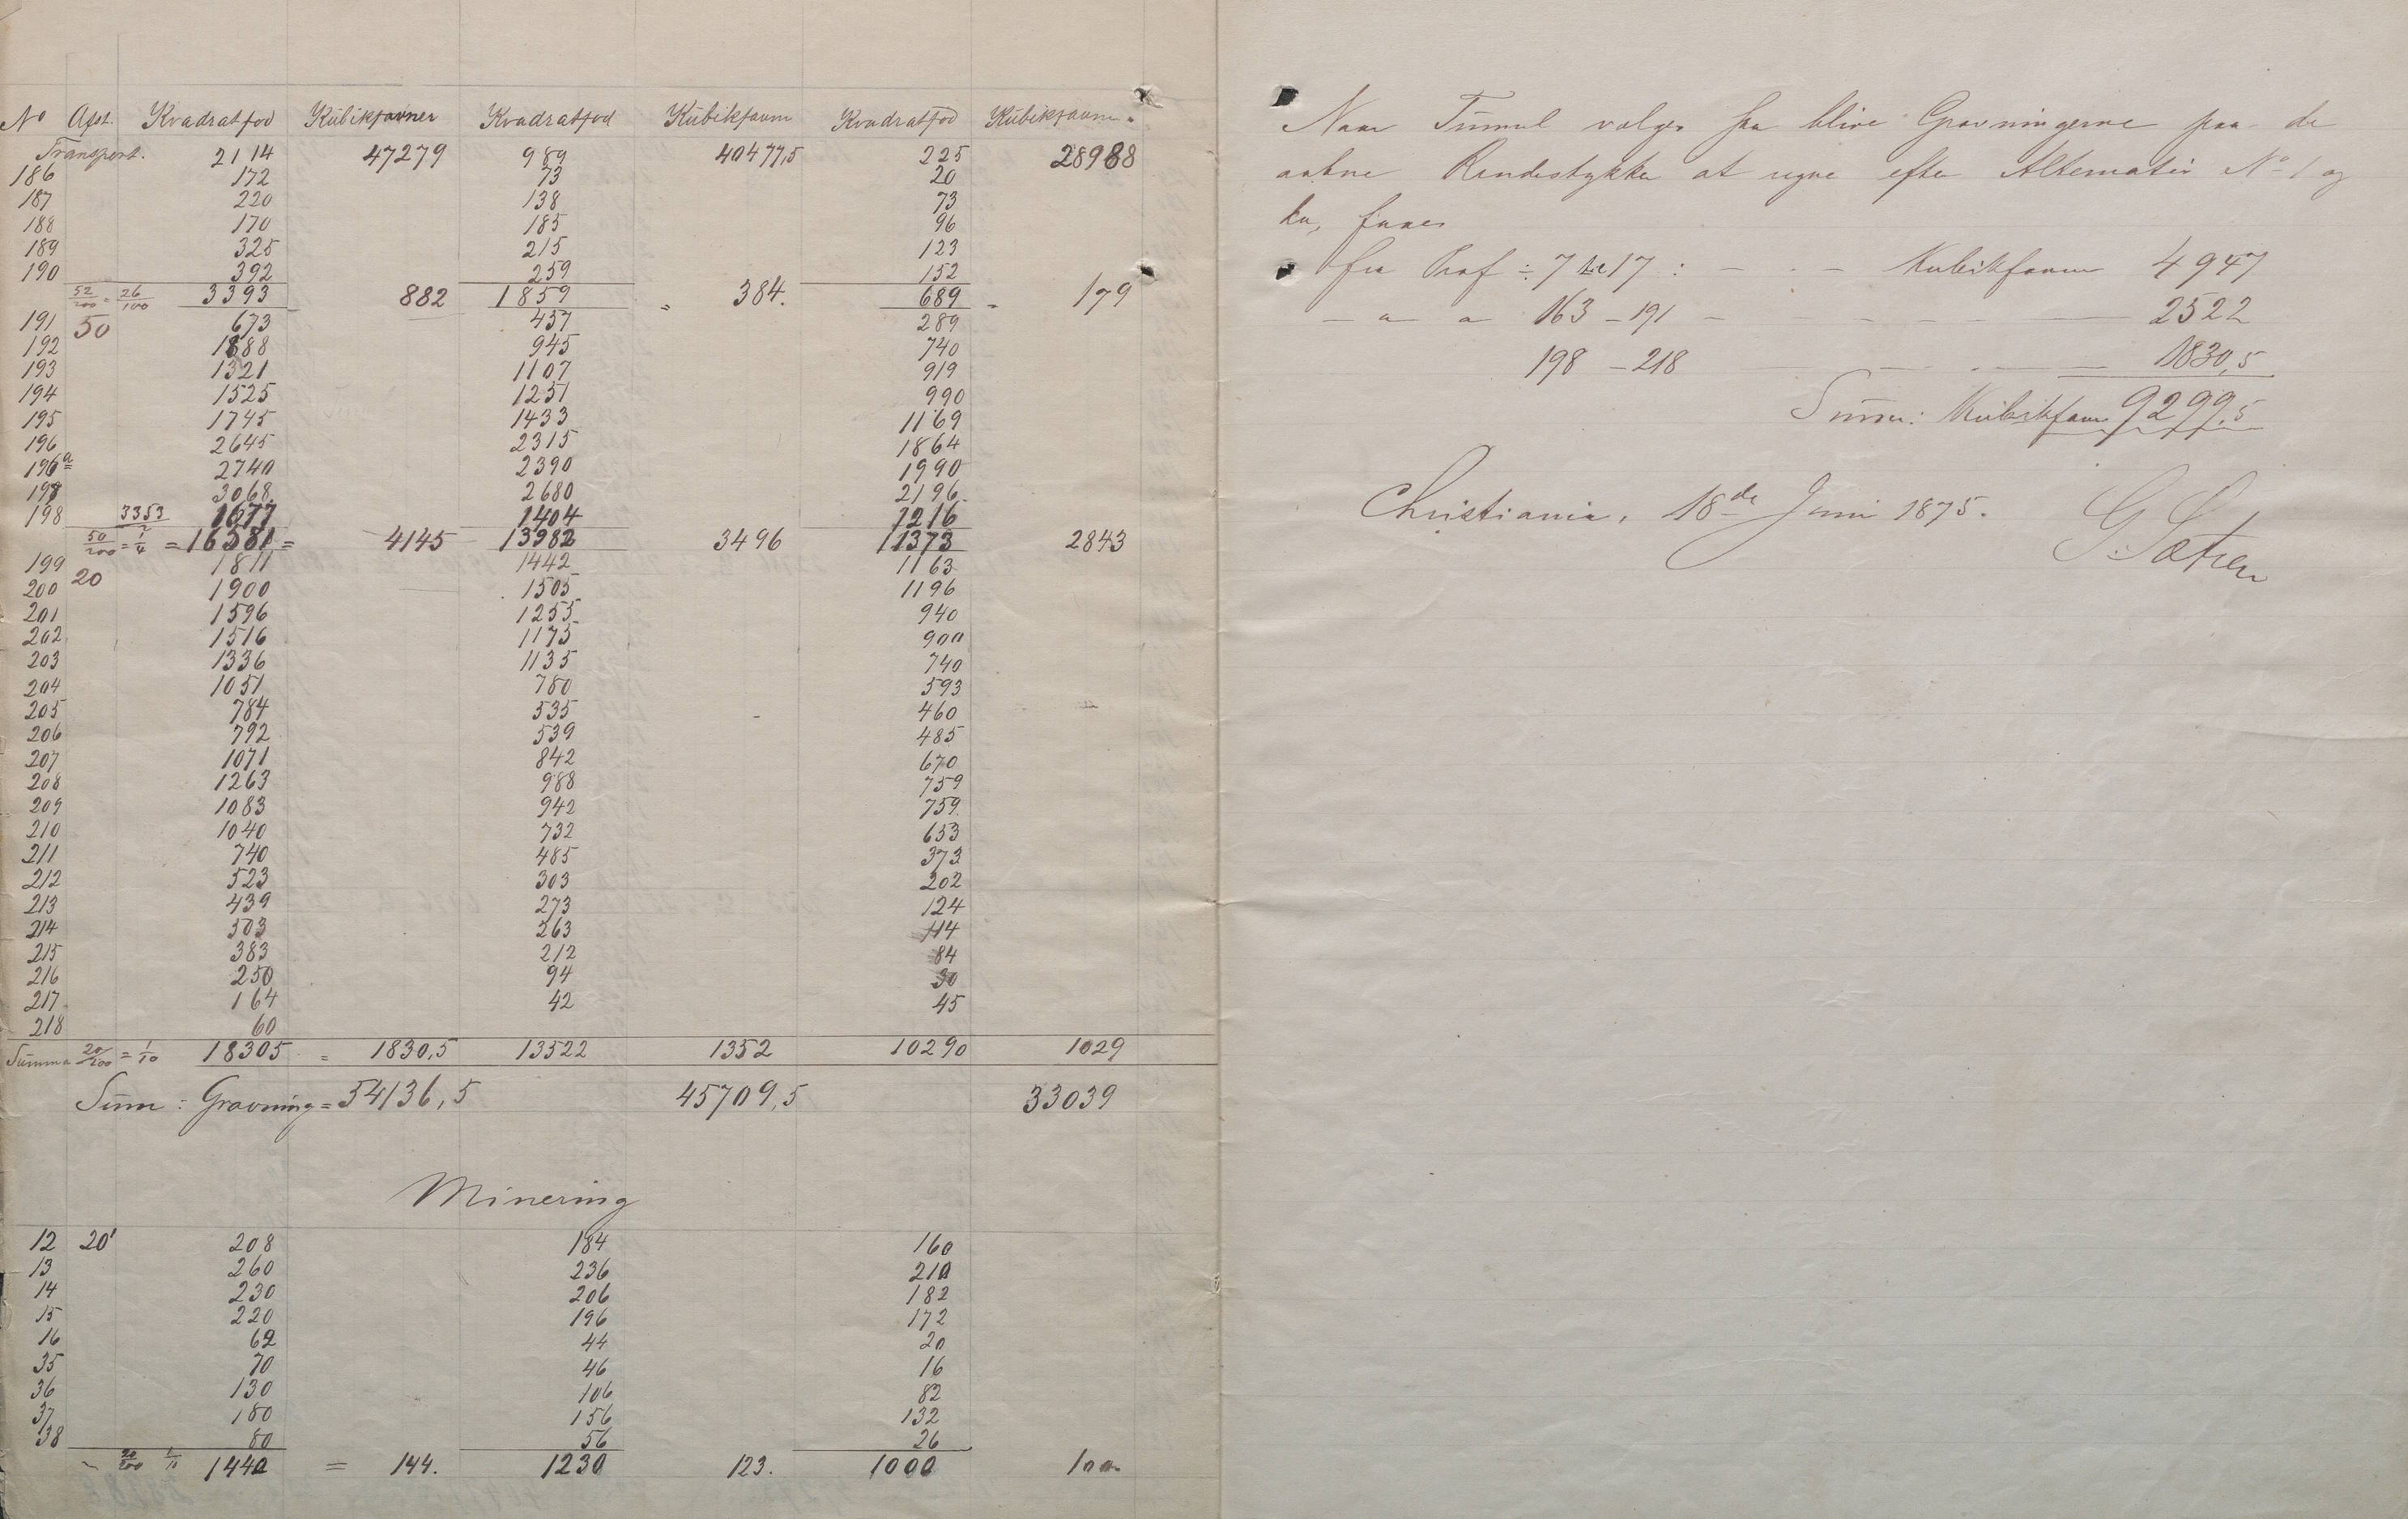 No Afst. Kvadratfod Kubikfavner Kvadratfod Kubikfavn Kvadratfod Kubikfavn.
Transport. 2114 47279 989 40477,5 225 28988
186 172 73 20
187 220 138 73
188 170 185 96
189 325 215 123
190 392 259 152
52/200 = 26/100 3393 882 1859 = 384. 689 = 179
191 50 673 457 289
192 1888 945 740
193 1321 1107 919
194 1525 1251 990
195 1745 1433 1169
196 2645 2315 1864
196a 2740 2390 1990
197 3068 2680 2196
198 3353/2 1677 1404 1216
50/200 = 1/4 = 16581 = 4145 13982 3496 11373 2843
199 20 1811 1442 1163
200 1900 1505 1196
201 1596 1255 940
202 1516 1175 900
203 1336 1135 740
204 1051 780 593
205 784 535 460
206 792 539 485
207 1071 842 670
208 1263 988 759
209 1083 942 759
210 1040 732 653
211 740 485 373
212 523 303 202
213 439 273 124
214 503 263 114
215 383 212 84
216 250 94 30
217 164 42 45
218 60
Summa 20/200 = 1/10 18305 = 1830,5 13522 1352 10290 1029
Sum: Gravning = 54136,5 45709,5 33039
Minering
12 20' 208 184 160
13 260 236 210
14 230 206 182
15 220 196 172
16 62 44 20
35 70 46 16
36 130 106 82
37 180 156 132
38 80 56 26
20/200 1/10 1440 = 144. 1230 123. 1000 100
Naar Tunnel vælges saa blive Gravningerne paa de
aabne Rendestykker at regne efter Alternativ No 1 og
faaes
fra Prof ÷ 7 til 17 : Kubikfavne 4947
- " - " 163 - 191 - 2522
198 - 218 1830,5
Summ: Kubikfavne 9299,5
Christiania, 18de Juni 1875.
G. Sætren